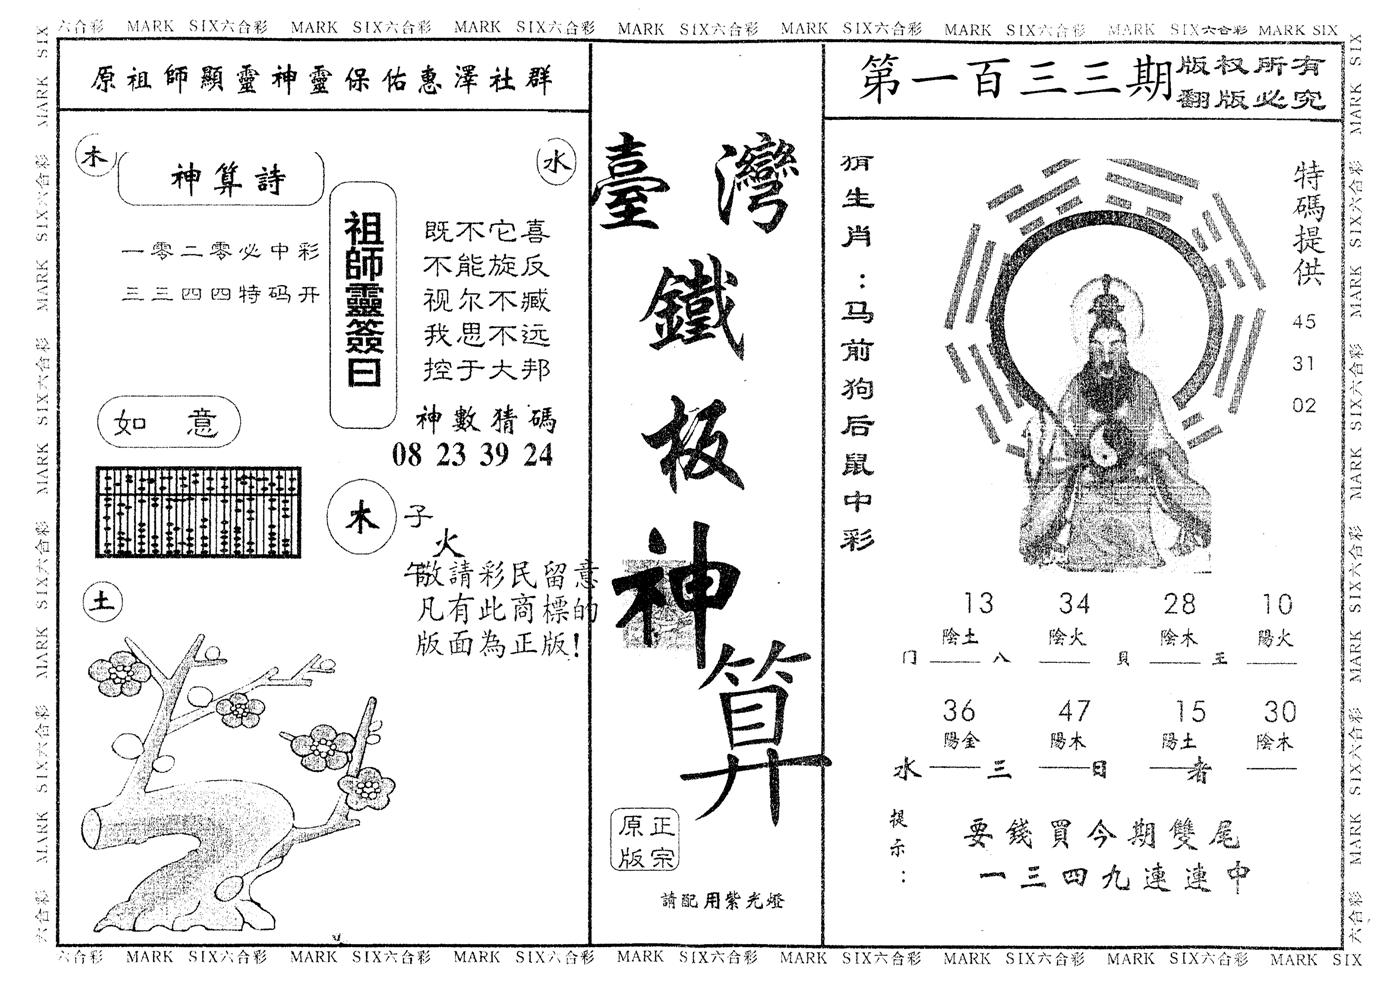 六合彩 MARK SIX六合彩 MARK SIX六合彩 MARK SIX六合彩 MARK SIX六合彩 MARK SIX六合彩 MARK SIX六合彩 MARK SIX六合彩 MARK SIX
原祖師顯靈神靈保佑惠澤社群
木
神算詩
水
一零二零必中彩
三三四四特码开
祖師靈簽曰
既不它喜
不能旋反
视尔不臧
我思不远
控于大邦
神數猜碼
08 23 39 24
如意
木
子
火
午
敬請彩民留意
凡有此商標的
版面為正版!
土
臺灣
鐵
板
神
算
原正
版宗
請配用紫光燈
第一百三三期
版权所有
翻版必究
猜生肖:马前狗后鼠中彩
特碼提供
45
31
02
13 34 28 10
陰土 陰火 陰木 陽火
门 八 貝 王
36 47 15 30
陽金 陽木 陽土 陰木
水 三 日 者
提示:
要錢買今期雙尾
一三四九連連中
六合彩 MARK SIX六合彩 MARK SIX六合彩 MARK SIX六合彩 MARK SIX六合彩 MARK SIX六合彩 MARK SIX六合彩 MARK SIX六合彩 MARK SIX